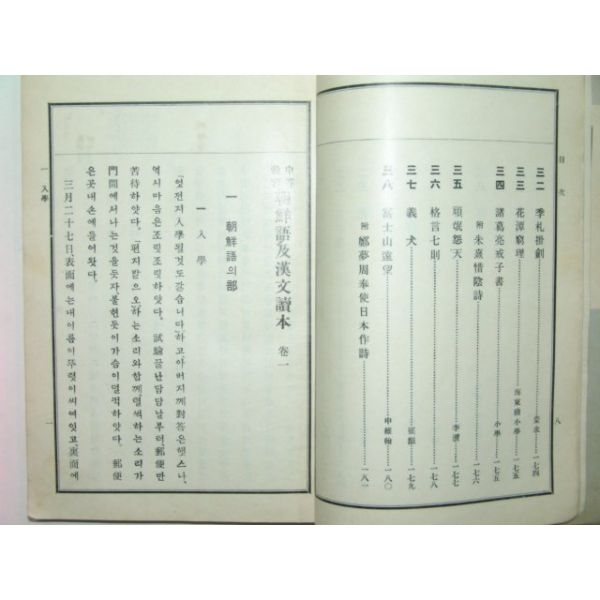 目次
八
三二 季札掛劍 蒙求 一七四
三三 花潭窮理 海東續小學 一七五
三四 諸葛亮戒子書 小學 一七五
附 朱熹惜陰詩 一七六
三五 頑氓怨天 李瀷 一七七
三六 格言七則 一七八
三七 義犬 一七九
三八 富士山遠望 申維翰 一八〇
附 鄭夢周奉使日本作詩 一八一
朝鮮語及漢文讀本 卷一
一 朝鮮語의部
一 入學
「엇전지入學될것도갓습니다」하고,아버지께對答은햇스나,
역시마음은조릿조릿하얏다. 試驗끝난담담날부터,郵便만
苦待하얏다. 「편지밧으오」하는소리와함께,덜석하는소리가
門間에서나는것을듯자,불현듯이가슴이덜컥하얏다. 郵便
은곳내손에들어왓다.
三月二十七日,表面에는내이름이뚜렷이씨여잇고,裏面에
一 入學
一